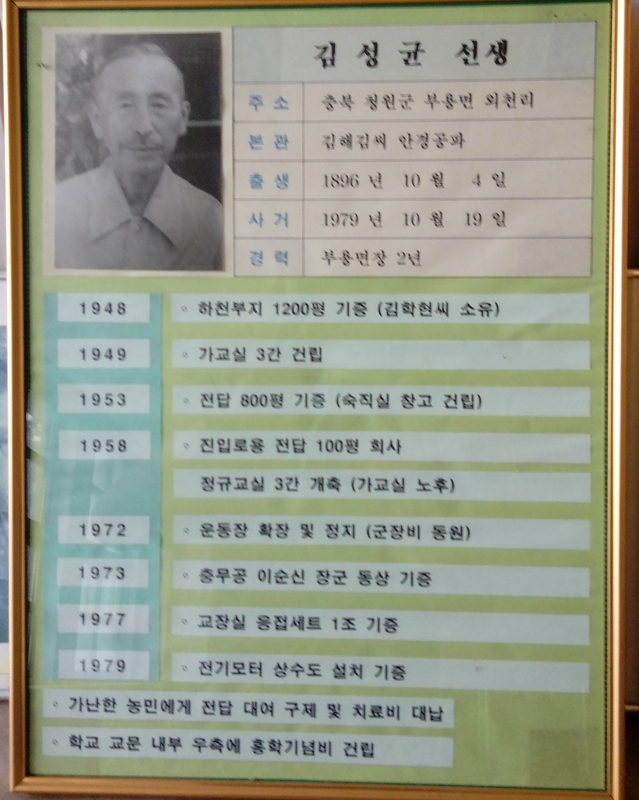 김 성 균 선생
주 소 충북 청원군 부용면 외천리
본 관 김해김씨 안경공파
출 생 1896 년 10 월 4 일
사 거 1979 년 10 월 19 일
경 력 부용면장 2년
1948 ◦ 하천부지 1200평 기증 (김학현씨 소유)
1949 ◦ 가교실 3간 건립
1953 ◦ 전답 800평 기증 (숙직실 창고 건립)
1958 ◦ 진입로용 전답 100평 희사
정규교실 3간 개축 (가교실 노후)
1972 ◦ 운동장 확장 및 정지 (군장비 동원)
1973 ◦ 충무공 이순신 장군 동상 기증
1977 ◦ 교장실 응접세트 1조 기증
1979 ◦ 전기모터 상수도 설치 기증
◦ 가난한 농민에게 전답 대여 구제 및 치료비 대납
◦ 학교 교문 내부 우측에 흥학기념비 건립